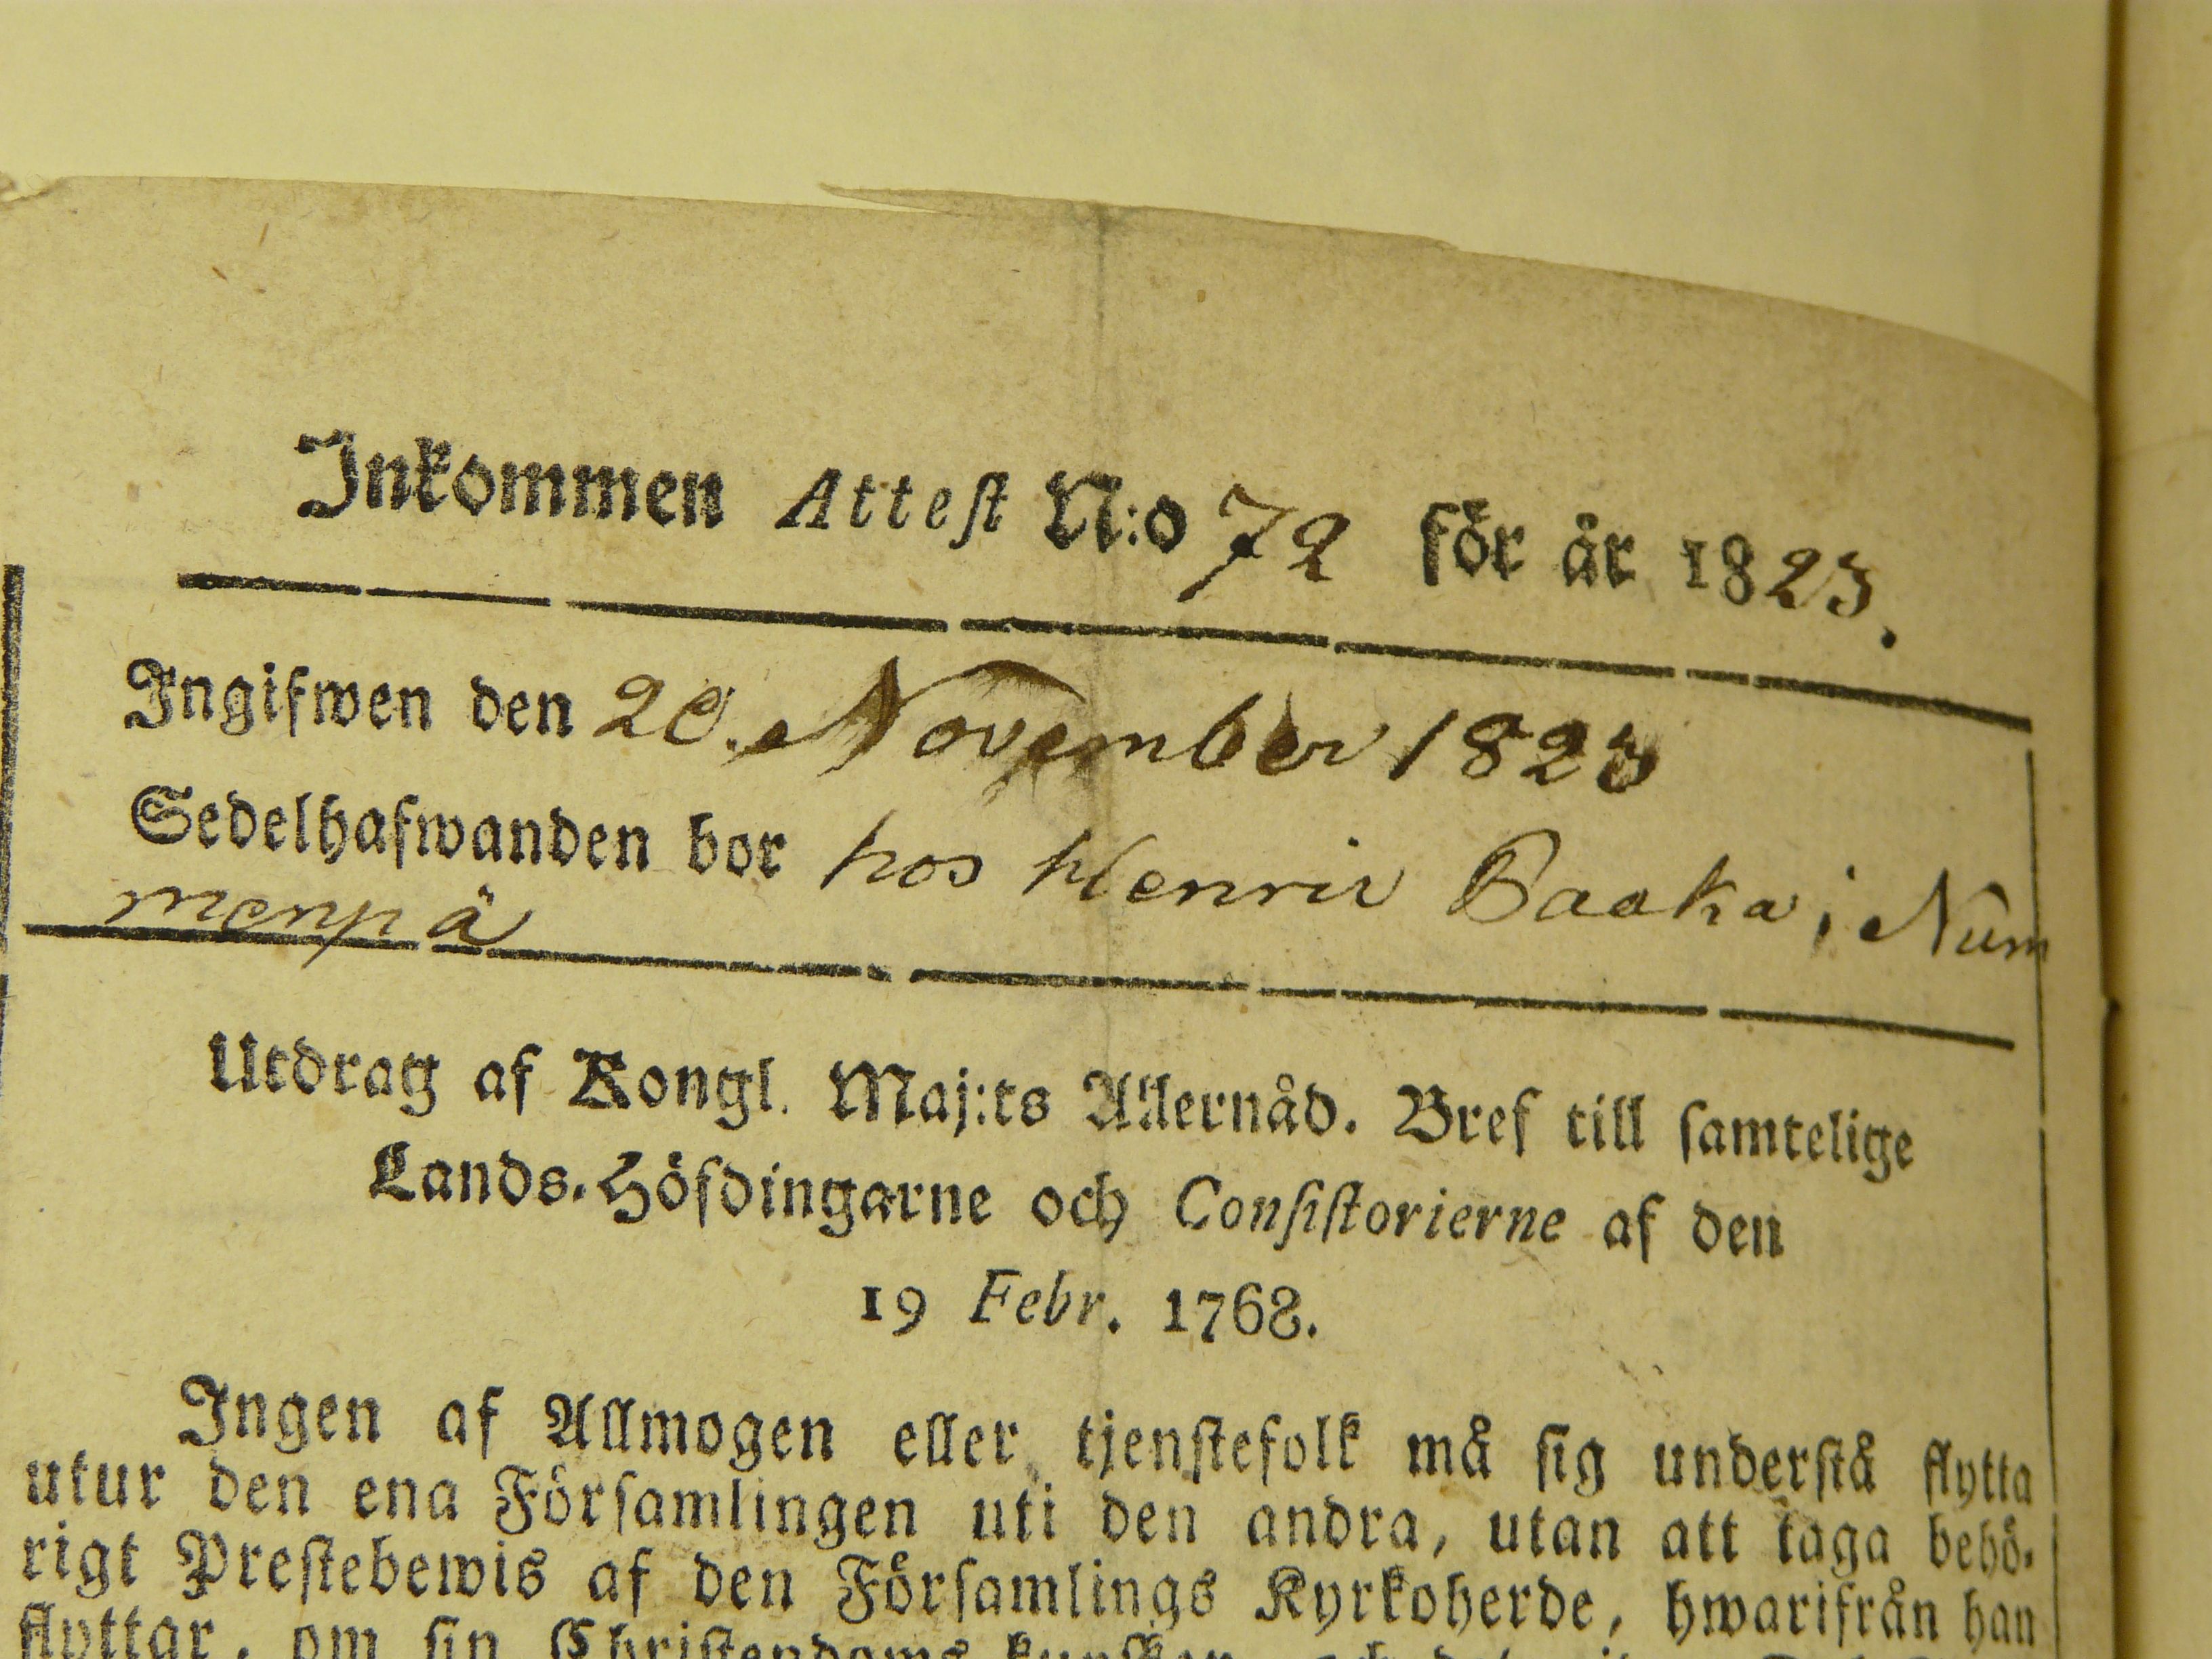 Inkommen Attest N:o 72 för år 1823.
Ingifwen den 20. November 1823
Sedelhafwanden bor hos Henric Baaka i Num
menpä
Utdrag af Kongl. Maj:ts Allernåd. Bref till samtelige
Lands-Höfdingarne och Consistorierne af den
19 Febr. 1768.
Ingen af Allmogen eller tjenstefolk må sig understå flytta
utur den ena Församlingen uti den andra, utan att taga behö-
rigt Prestebewis af den Församlings Kyrkoherde, hwarifrån han
flyttar, om sin Christendoms kunskap